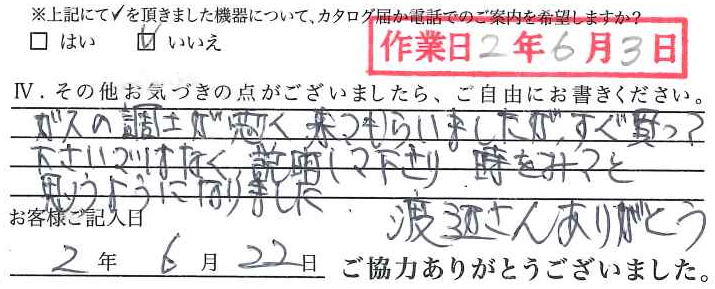 ※上記にて✓を頂きました機器について、カタログ届か電話でのご案内を希望しますか?
□ はい ☑ いいえ
作業日 2年6月3日
Ⅳ.その他お気づきの点がございましたら、ご自由にお書きください。
ガスの調子が悪く来てもらいましたが、すぐ買って
下さいではなく説明して下さり 時をみてと
思うようになりました
渡辺さんありがとう
お客様ご記入日
2年 6月 22日 ご協力ありがとうございました。